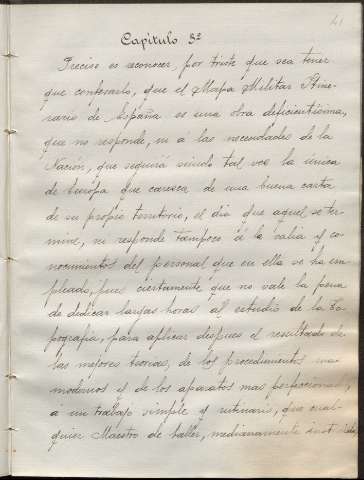 41
Capítulo 3º
Preciso es reconocer, por triste que sea tener
que confesarlo, que el Mapa Militar Itine-
rario de España es una obra deficientisima,
que no responde, ni á las necesidades de la
Nación, que seguirá siendo tal vez la única
de Europa que carezca de una buena carta
de su propio territorio, el dia que aquel se ter-
mine, ni responde tampoco á la valia y co-
nocimientos del personal que en ella se ha em-
pleado, pues ciertamente que no vale la pena
de dedicar largas horas al estudio de la To-
pografía, para aplicar despues el resultado de
las mejores teorias, de los procedimientos mas
modernos y de los aparatos mas perfeccionados,
á un trabajo simple y rutinario, que cual-
quier Maestro de taller, medianamente